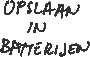 OPSLAAN
IN
BATTERIJEN